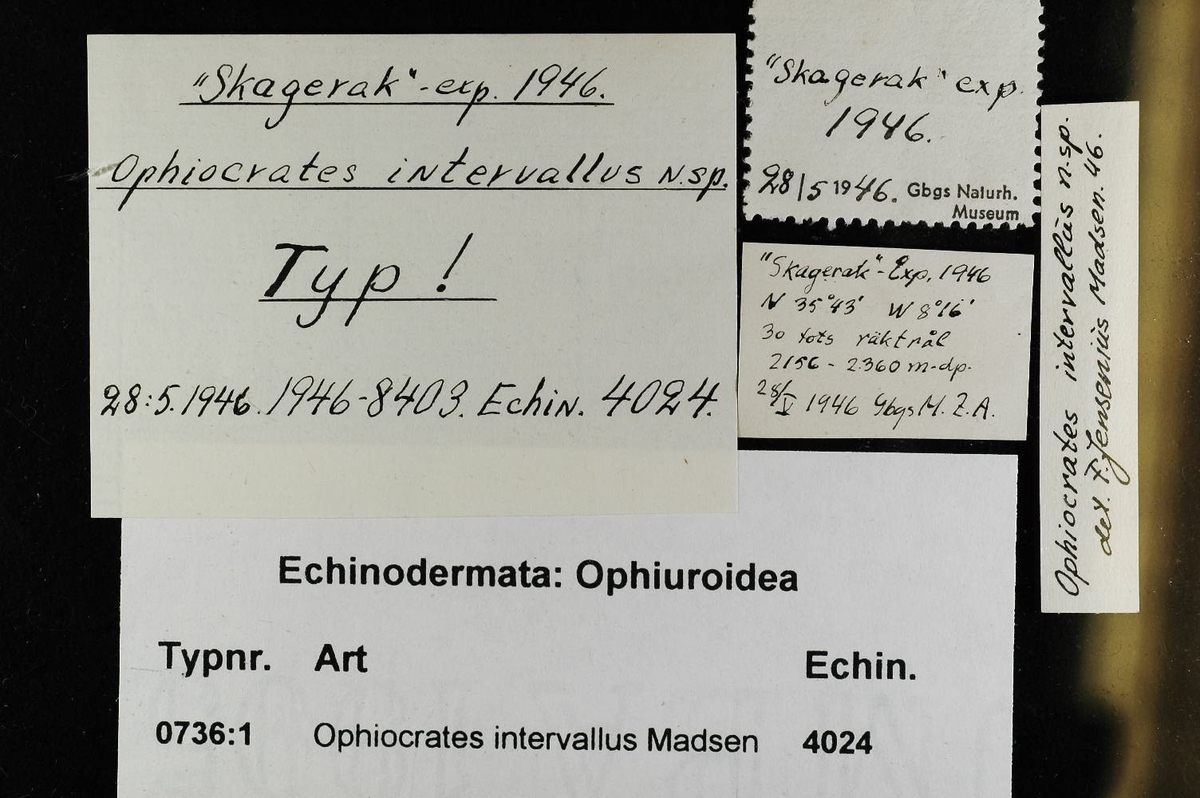 "Skagerak"-exp. 1946.
Ophiocrates intervallus N.sp.
Typ!
28:5.1946. 1946-8403. Echin. 4024.
"Skagerak" exp.
1946.
28/5 1946. Gbgs Naturh.
Museum
"Skagerak"-Exp. 1946
N 35°43' W 8°16'
30 fots räktrål
2156 - 2360 m-dp.
28/V 1946 GbgsM. Z.A.
Ophiocrates intervallus n.sp.
det. F. Jensenius Madsen. 46.
Echinodermata: Ophiuroidea
Typnr. Art Echin.
0736:1 Ophiocrates intervallus Madsen 4024